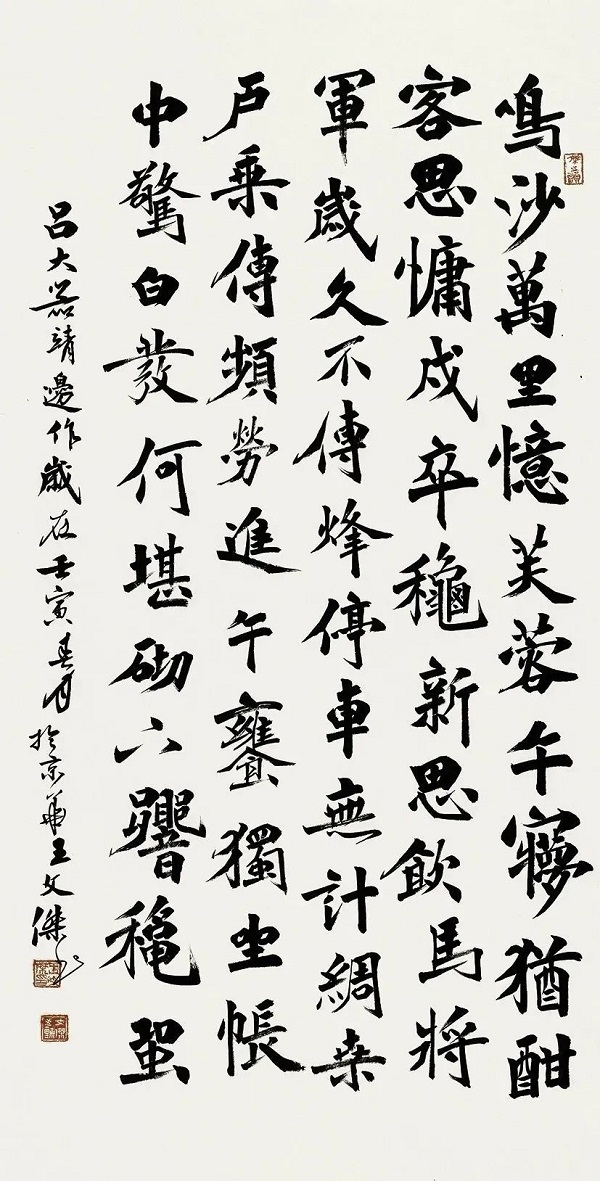 鳴沙萬里憶芙蓉午㝱猶酣
客思慵戍卒穐新思飲馬將
軍歲久不傳烽停車無計綢桒
戶乘傳頻勞進午饔獨坐帳
中驚白發何堪砌下響穐蛩
呂大器靖邊作歲在壬寅春月於京華王文傑書